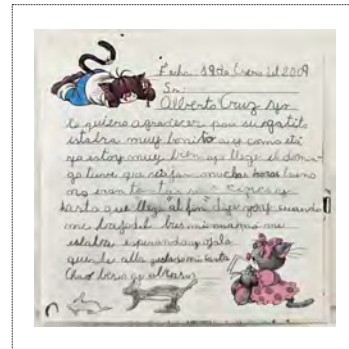 Fecha: 19 de Enero del 2009
Sr:
Alberto Cruz yo
le quiero agradecer por su gatito
estaba muy bonito a y como está
yo estoy muy bien yo llege el domin-
go tuve que muchas horas bueno
no eran tantas
hasta que llege "al fin" dije yo y cuando
me baje del bus mi mamá me
estaba esperando y ojala
que le alla gustado mi carta
Chao besos y abrasos